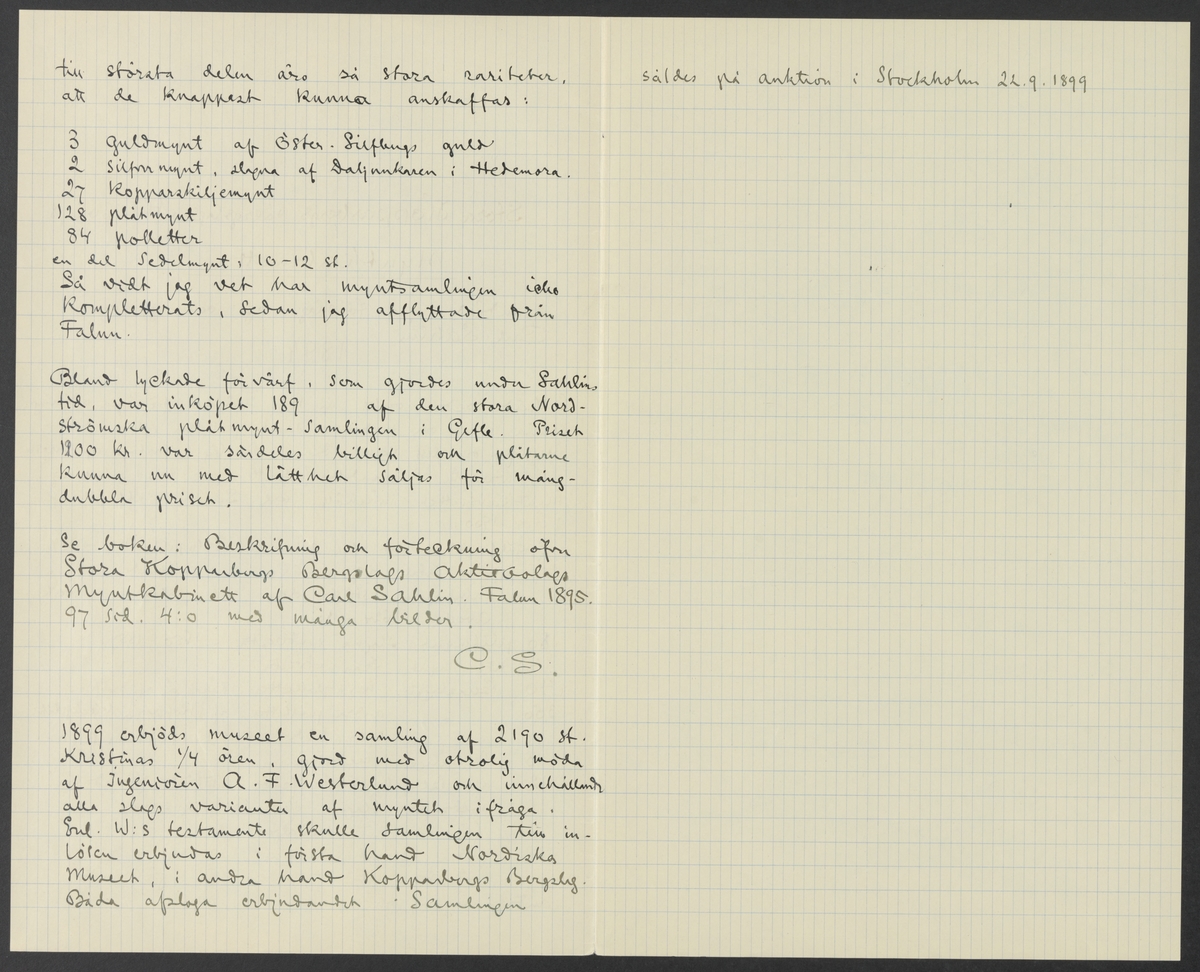 till största delen äro så stora rariteter,
att de knappast kunna anskaffas:
3 guldmynt af Öster-Silfbergs guld
2 silfvermynt, slagna af Daljunkaren i Hedemora.
27 Kopparskiljemynt
128 plåtmynt
84 polletter
en del Sedelmynt, 10-12 st.
Så vidt jag vet har myntsamlingen icke
Kompletterats, sedan jag afflyttade från
Falun.
Bland lyckade förvärf, som gjordes under Sahlins
tid, var inköpet 189 af den stora Nord-
strömska plåtmynt-samlingen i Gefle. Priset
1200 kr. var särdeles billigt och plåtarne
kunna nu med lätthet säljas för mång-
dubbla priset.
Se boken: Beskrifning och förteckning öfver
Stora Kopparbergs Bergslags Aktiebolags
Myntkabinett af Carl Sahlin. Falun 1895.
97 sid. 4:o med många bilder.
C. S.
1899 erbjöds museet en samling af 2190 st.
Kristinas 1/4 ören, gjord med otrolig möda
af Ingeniören A. F. Westerlund och innehållande
alla slags varianter af myntet ifråga.
Enl. W:s testamente skulle samlingen till in-
lösen erbjudas i första hand Nordiska
Museet, i andra hand Kopparbergs Bergslag.
Båda afslogo erbjudandet. Samlingen
såldes på auktion i Stockholm 22.9.1899